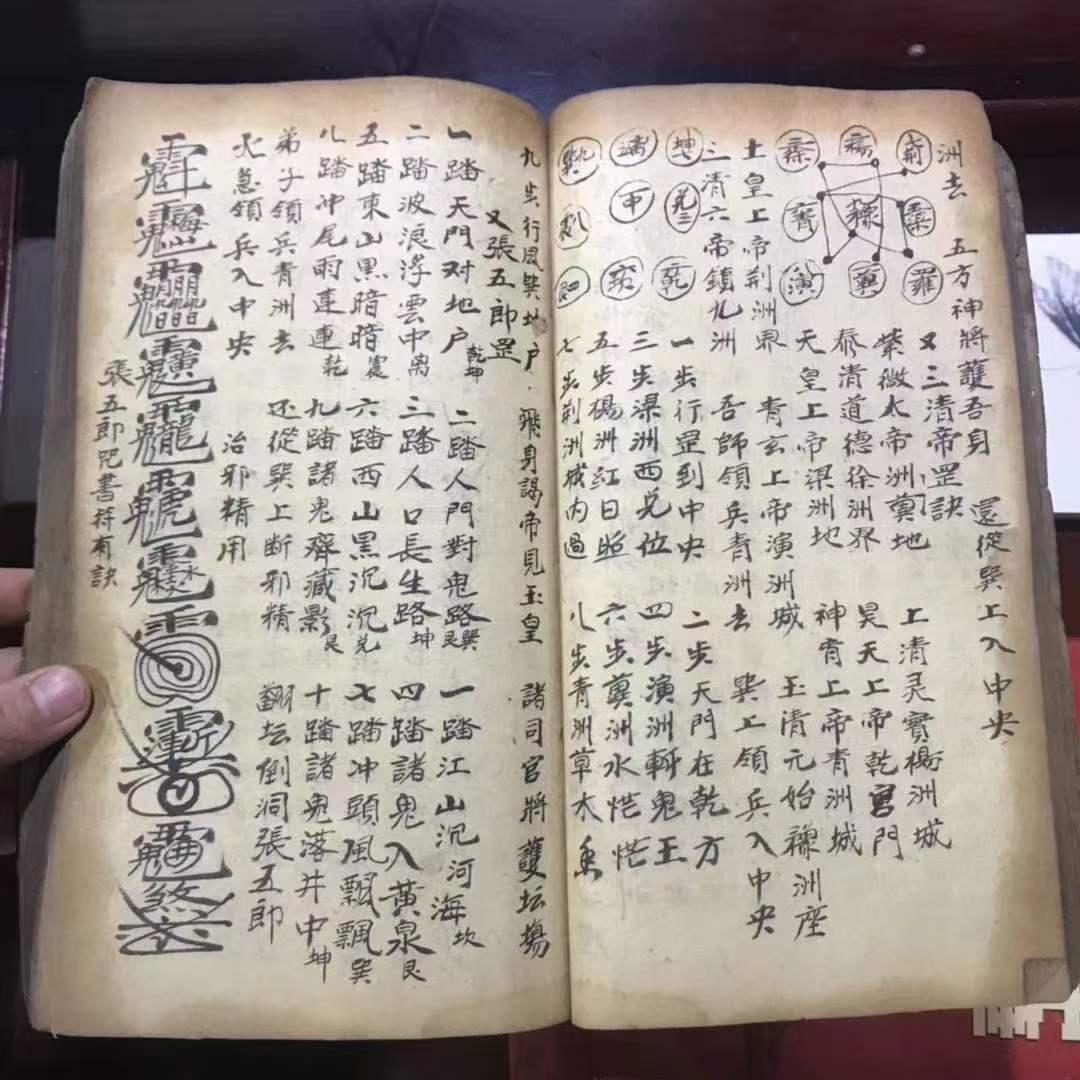 洲去 五方神將護吾身 還從巽上入中央
荆
秦
羅
冀
演
乾
坤
甲
又三清帝罡訣 上清灵寶楊洲城
紫微太帝洲冀地 昊天上帝乾宮門
泰清道德徐洲界 神宵上帝青洲城
天皇上帝梁洲地 玉清元始洲座
土皇上帝荆洲界 青玄上帝演洲城
三清六帝鎮九洲 吾師領兵青洲去 巽上領兵入中央
一步行罡到中央 二步天門在乾方
三步梁洲西兑位 四步演洲斬鬼王
五步楊洲紅日照 六步冀洲水茫茫
七步荆洲城内過 八步青洲草木香
九步行罡巽地户 飛身謁帝見玉皇 諸司官將護坛場
又張五郎罡
一踏天門对地户乾坤 二踏人門對鬼路艮巽 一踏江山沉河海坎
二踏波浪浮雲中离 三踏人口長生路坤 四踏諸鬼入黃泉艮
五踏東山黑暗暗震 六踏西山黑沉沉兑 七踏冲頭風飄飄巽
八踏冲尾雨連連乾 九踏諸鬼齊藏影艮 十踏諸鬼落井中坤
弟子領兵青洲去 还從巽上断邪精 翻坛倒洞張五郎
火急領兵入中央 治邪精用
張五郎咒書符有訣